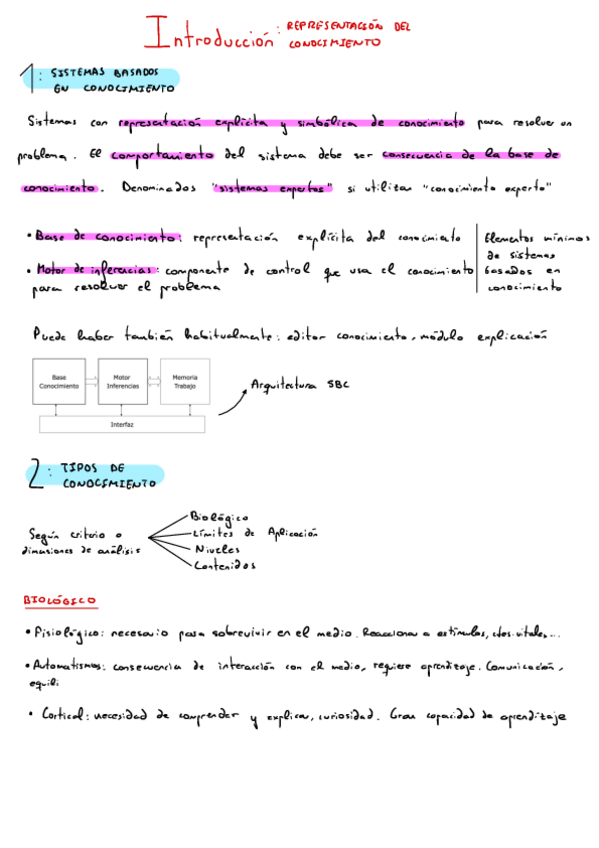 Introducción : REPRESENTACIÓN DEL
CONOCIMIENTO
1: SISTEMAS BASADOS
EN CONOCIMIENTO
Sistemas con representación explícita y simbólica de conocimiento para resolver un
problema. El comportamiento del sistema debe ser consecuencia de la base de
conocimiento. Denominados "sistemas expertos" si utilizan "conocimiento experto"
• Base de conocimiento: representación explícita del conocimiento
• Motor de inferencias: componente de control que usa el conocimiento
para resolver el problema
Elementos mínimos
de sistemas
basados en
conocimiento
Puede haber también habitualmente: editor conocimiento, módulo explicación
Base
Conocimiento
Motor
Inferencias
Memoria
Trabajo
Interfaz
Arquitectura SBC
2: TIPOS DE
CONOCIMIENTO
Según criterio o
dimensiones de análisis
Biológico
Límites de Aplicación
Niveles
Contenidos
BIOLÓGICO
• Fisiológico: necesario para sobrevivir en el medio. Reaccionar a estímulos, ctes. vitales,...
• Automatismos: consecuencia de interacción con el medio, requiere aprendizaje. Comunicación,
equili
• Cortical: necesidad de comprender y explicar, curiosidad. Gran capacidad de aprendizaje